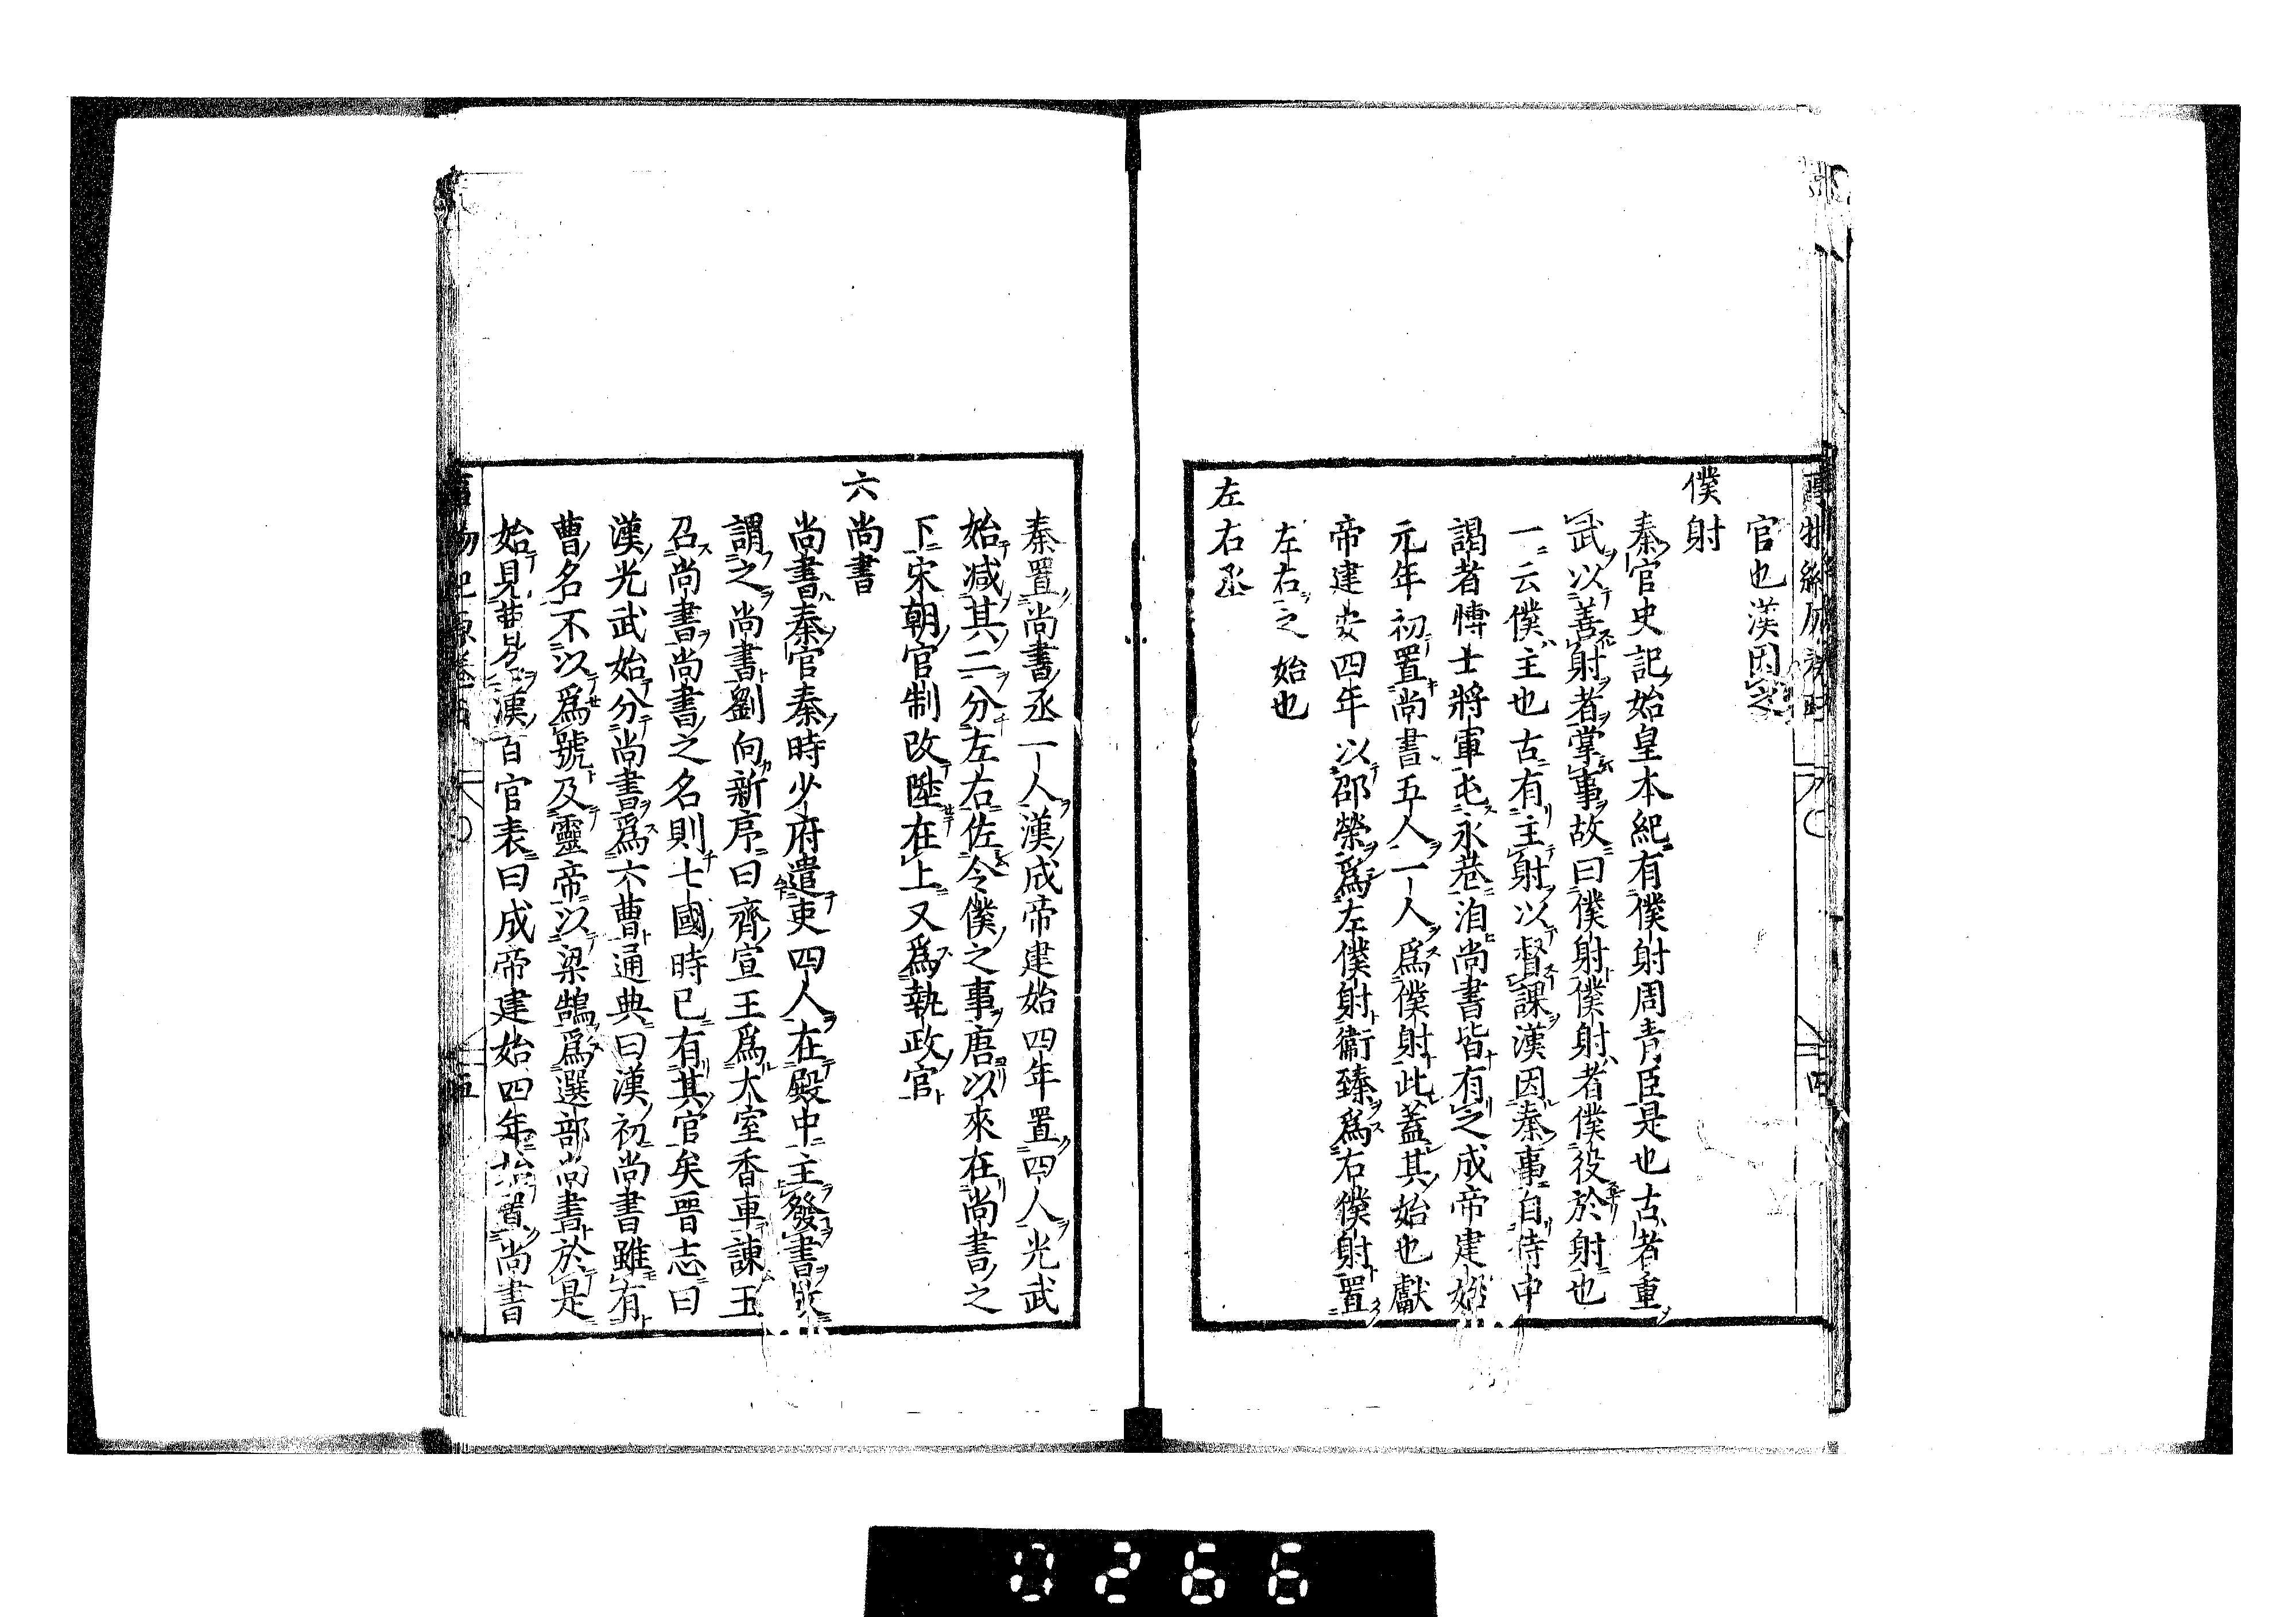 官也漢因之
僕射
秦官史記始皇本紀有僕射周青臣是也古者重
武以善射者掌事故曰僕射僕射者僕役於射也
一云僕主也古有主射以督課漢因秦事自侍中
謁者博士將軍屯永巷洎尚書皆有之成帝建始
元年初置尚書五人一人爲僕射此蓋其始也獻
帝建安四年以邵榮爲左僕射衞臻爲右僕射置
左右之始也
左右丞
秦置尚書丞一人漢成帝建始四年置四人光武
始减其二分左右佐令僕之事唐以來在尚書之
下宋朝官制改陞在上又爲執政官
六尚書
尚書秦官秦時少府遣吏四人在殿中主發書故
謂之尚書劉向新序曰齊宣王爲大室香車諫王
召尚書尚書之名則七國時已有其官矣晋志曰
漢光武始分尚書爲六曹通典曰漢初尚書雖有
曹名不以爲號及靈帝以梁鵠爲選部尚書於是
始見曹名漢百官表曰成帝建始四年初置尚書
五
0266